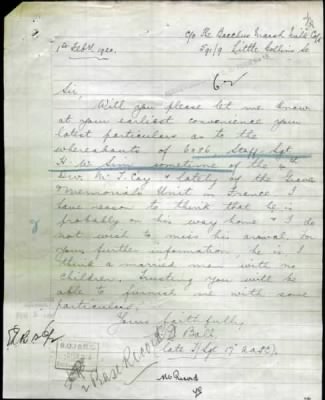 c/o The Bacchus Marsh Milk Coy
591/9 Little Collins St
1st Feby 1920.
Sir,
Will you please let me know
at your earliest convenience your
latest particulars as to the
whereabouts of 6056 Staff-Sgt
H W Sim sometime of the
Div. M. T. Coy & lately of the Graves
& Memorials Unit in France I
have reason to think that he is
probably on his way home & I do
not wish to miss his arrival. For
your further information, he is I
think a married man with no
children. Trusting you will be
able to furnish me with some
particulars,
Yours faithfully,
Ball
late S/Sgt 17 AASC).
Base Records
No Record